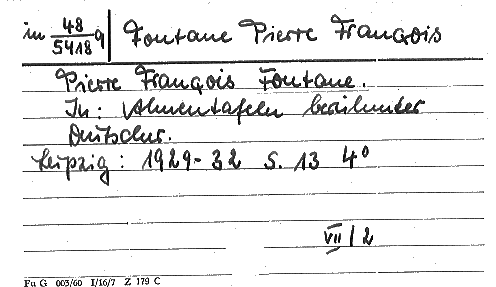 in 48/5418 q Fontane Pierre François
Pierre François Fontane.
In: Ahnentafeln berühmter
Deutscher.
Leipzig: 1929-32 S. 13 4°
VII/2
Fu G 003/60 I/16/7 Z 179 C